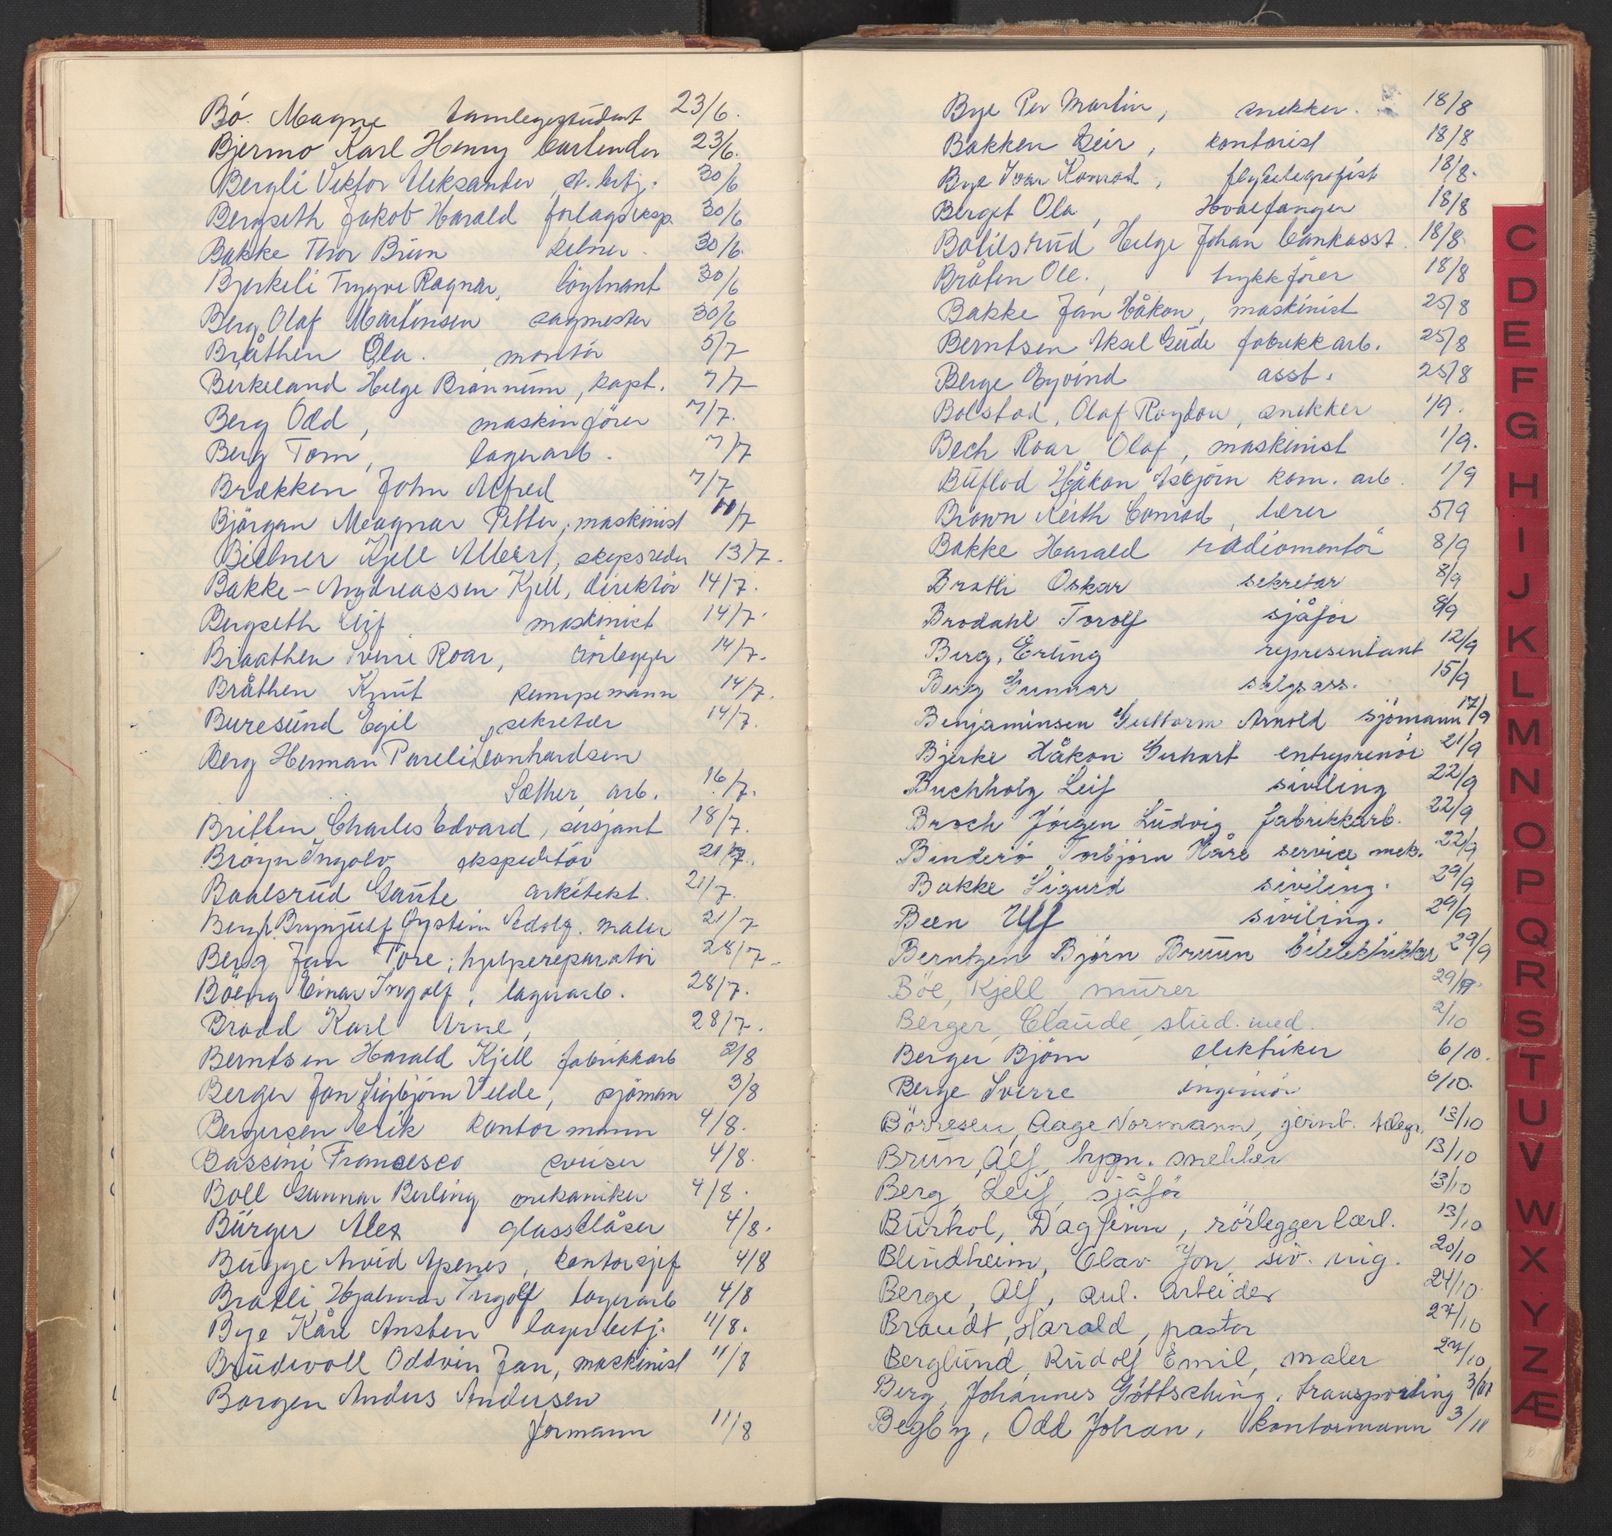 Bö. Magne tannlegestudent 23/6.
Bjermo Karl Henry bartender 23/6.
Bergli Viktor Aleksander, st. betj. 30/6
Bergseth Jakob Harald forlagseksp. 30/6
Bakke Thor Brun kelner. 30/6.
Bjerkeli Trygve Ragnar, löytnant 30/6
Berg Olaf Martinsen sagmester 30/6
Bråthen Ola. montör 5/7
Berkeland Helge Brannum, kapt. 7/7
Berg Odd, maskinförer 7/7.
Berg Tom, lagerarb. 7/7
Brækken John Alfred 7/7
Björgan Magnar Petter, maskinist 11/7
Kjell Albert, skipsreder 13/7.
Bakke-Andreassen Kjell, direktör 14/7.
Bergseth Leif maskinist 14/7.
Braathen Sverre Roar, rörlegger 14/7.
Bråthen Knut kumpemann 14/7.
Buresund Egil, sekretær 14/7.
Berg Herman Pareli Leonhardsen
Sæther, arb. 16/7.
Britten, Charles Edvard, sersjant 18/7.
Bröyn Ingolv ekspeditör 21/7.
Baalsrud Gaute arkitekt. 21/7.
Bergh Brynjulf Øystein Adolg. maler 21/7
Berg Jan Tore, hjelpereparatör 28/7
Böeng Einar Ingolf, lagerarb. 28/7.
Brodd Karl Arne, 28/7.
Berntsen Harald Kjell fabrikkarb 2/8
Berger Jan Sigbjörn Velde, sjöman 3/8
Bergersen Erik kontormann 4/8.
Bassini Francesco 4/8.
Boll Gunnar Berling mekaniker 4/8.
Bürger Alex glassblåser 4/8.
Bugge Arvid Apenes, kontorsjef 4/8
Bratli, Hjalmar Ingolf lagerarb 4/8
Bye Kåre Ansten lagerbetj. 11/8.
Brudevoll Oddvin Jan, maskinist 11/8
Borgen Anders Andersen
formann 11/8
Bye Per Martin, snekker. 18/8
Bakken Geir, kontorist 18/8
Bye Ivar Konrad, flytelegrafist 18/8.
Berget Ola, Hvalfanger 18/8
Bolilsrud Helge Johan bankasst. 18/8
Bråten Ole., trykkförer 18/8
Bakke Jan Håkon, maskinist 25/8
Berntsen Aksel Gude fabrikkarb. 25/8
Berge Eyvind asst. 25/8
Bolstad, Olaf Røydon, snekker 1/9.
Bech Roar Olaf, maskinist 1/9.
Buflod Håkon Asbjörn kom. arb. 1/9
Brown Keith Conrad, lærer 5/9
Bakke Harald radiomontör 8/9
Bratli Oskar sekretær 8/9
Brodahl Torolf sjåför 8/9
Berg, Erling representant 12/9
Berg Gunnar salgsass. 15/9
Benjaminsen Guttorm Arnold sjömann 17/9
Bjerke Håkon Gerhart entreprenör 21/9
Buchholz Leif siviling 22/9
Broch Jörgen Ludvig fabrikkarb. 22/9
Binderö Torbjörn Kåre service mek. 22/9
Bakke Sigurd siviling. 29/9
Been Ulf siviling. 29/9
Berntzen Björn Bruun bilelektriker 29/9
Böe, Kjell, murer 29/9.
Berger, Claude, stud. med. 2/10
Berger Björn elektriker 6/10.
Berge Sverre ingeniör 6/10.
Börresen, Aage Normann, jernb. telegr. 13/10
Brun, Alf, bygn. snekker 13/10
Berg, Leif, sjåför 13/10
Burhol, Dagfinn, rörleggerlærl. 13/10
Blindheim, Olav Jon, siv. ing. 20/10
Berge, Alf, anl. arbeider 24/10
Brandt, Harald, pastor 27/10
Berglund, Rudolf Emil, maler 27/10
Berg, Johannes Göttsching, transporting 3/11
Begby, Odd Johan, kontormann 3/11
C
D
E
F
G
H
I
J
K
L
M
N
O
P
Q
R
S
T
U
V
W
X
Y
Z
Æ